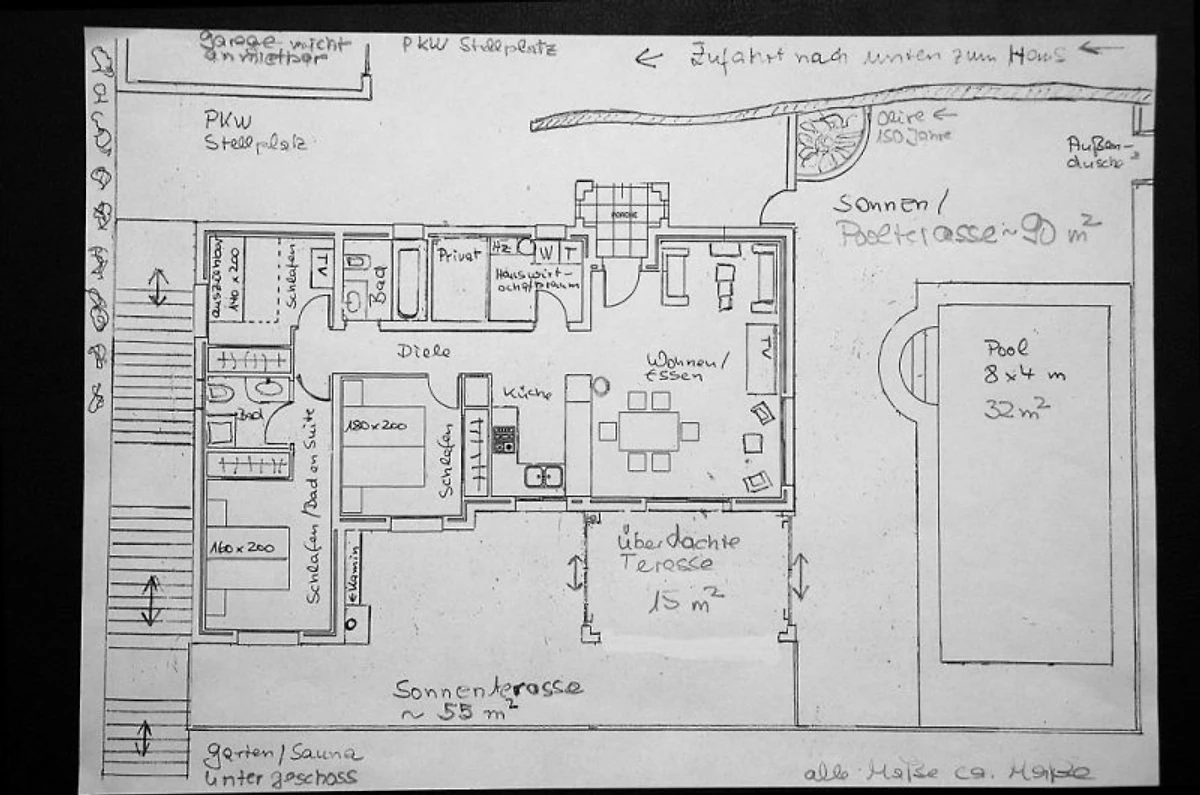 Garage nicht
anmietbar
PKW Stellplatz
← Zufahrt nach unten zum Haus ←
PKW
Stellplatz
Olive ←
150 Jahre
Außen-
dusche
Sonnen/
Poolterasse ~ 90 m²
PORCHE
ausziehbar
140 x 200
Schlafen
TV
Bad
Privat
Hz
W T
Hauswirt-
schaftsraum
Diele
Wohnen/
Essen
TV
Pool
8 x 4 m
32 m²
Küche
Bad
180 x 200
Schlafen
Schlafen/Bad en Suite
160 x 200
Kamin
Überdachte
Terasse
15 m²
Sonnenterasse
~ 55 m²
Garten/Sauna
Untergeschoss
alle Maße ca. Maße